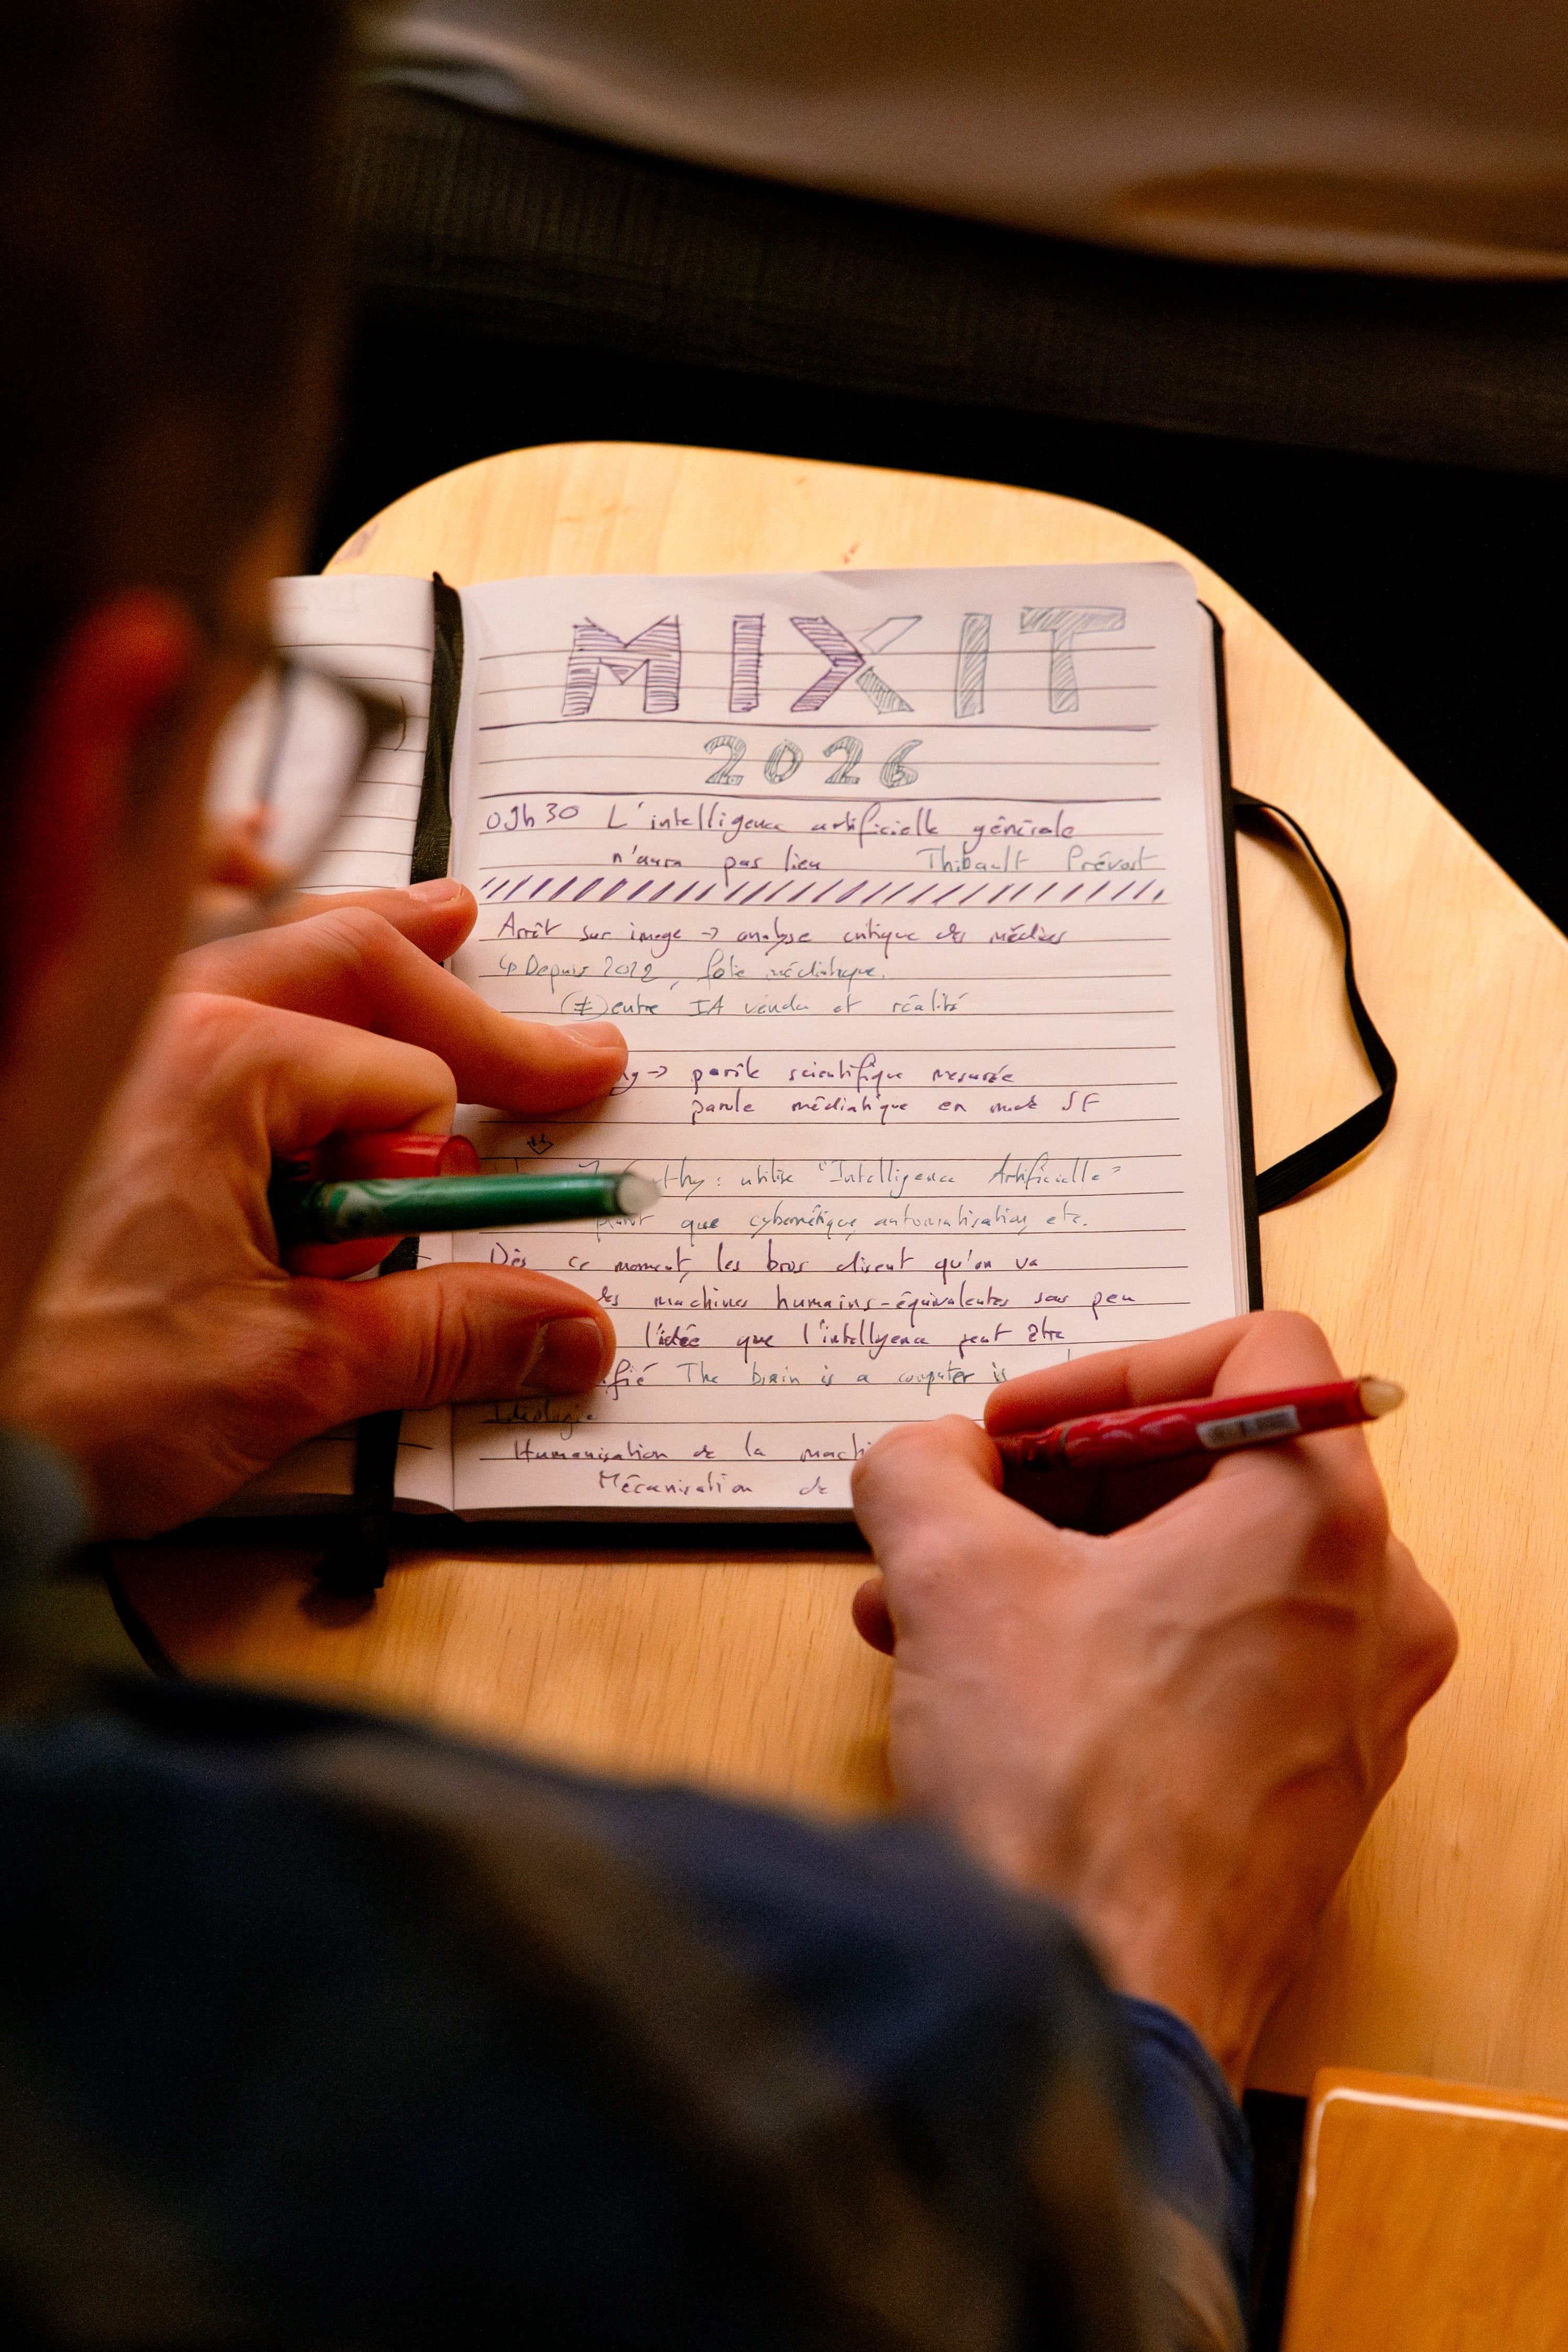 MIXIT
2026
09h30 L'intelligence artificielle générale
n'aura pas lieu Thibault Prévost
Arrêt sur image → analyse critique des médias
↳ Depuis 2022, folie médiatique.
(≠) entre IA vendu et réalité
→ parole scientifique mesurée
parole médiatique en mode SF
thy : utilise "Intelligence Artificielle"
plutôt que cybernétique, automatisation, etc.
Dès ce moment, les bros disent qu'on va
des machines humains-équivalentes sous peu
l'idée que l'intelligence peut être
ifié The brain is a computer is
Idéologie
Humanisation de la machi
Mécanisation de